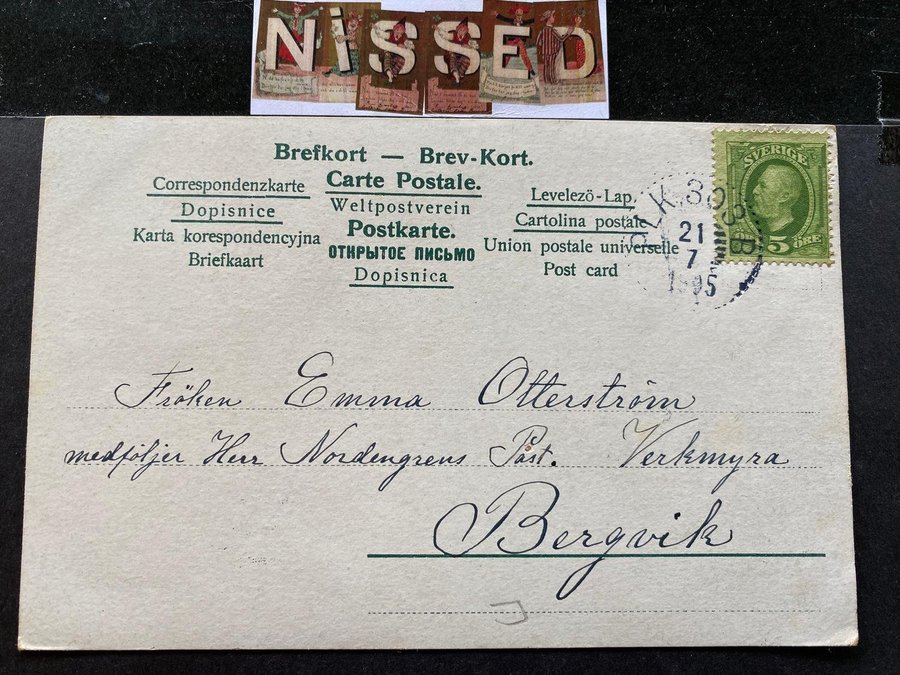 NiSSED
Brefkort — Brev-Kort.
Correspondenzkarte
Dopisnice
Karta korespondencyjna
Briefkaart
Carte Postale.
Weltpostverein
Postkarte.
ОТКРЫТОЕ ПИСЬМО
Dopisnica
Levelező-Lap.
Cartolina postale
Union postale universelle
Post card
SVERIGE
5 ÖRE
21
7
1905
Fröken Emma Otterström
medföljer Herr Nordengrens Post. Verkmyra
Bergvik